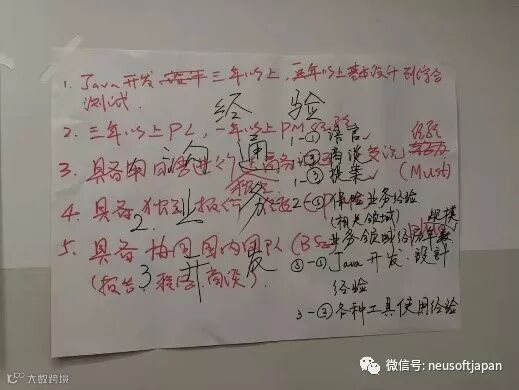 1. Java开发 三年以上, 五年以上基本设计到综合
测试.
经 验
2. 三年以上PL, 一年以上PM经验
经验
1-① 语言
沟通
3. 具备用日语进行
② 商谈
交流
(Must)
1-③ 提案
4. 具备独到
2.业务
2-① 保险业务经验
(相关领域)
规模
业务领域经
5. 具备 国内
(报告, 商谈).
3 开 发
3-① Java开发. 設計
经验
3-② 各种工具使用经验
大数跨境
微信号: neusoftjapan